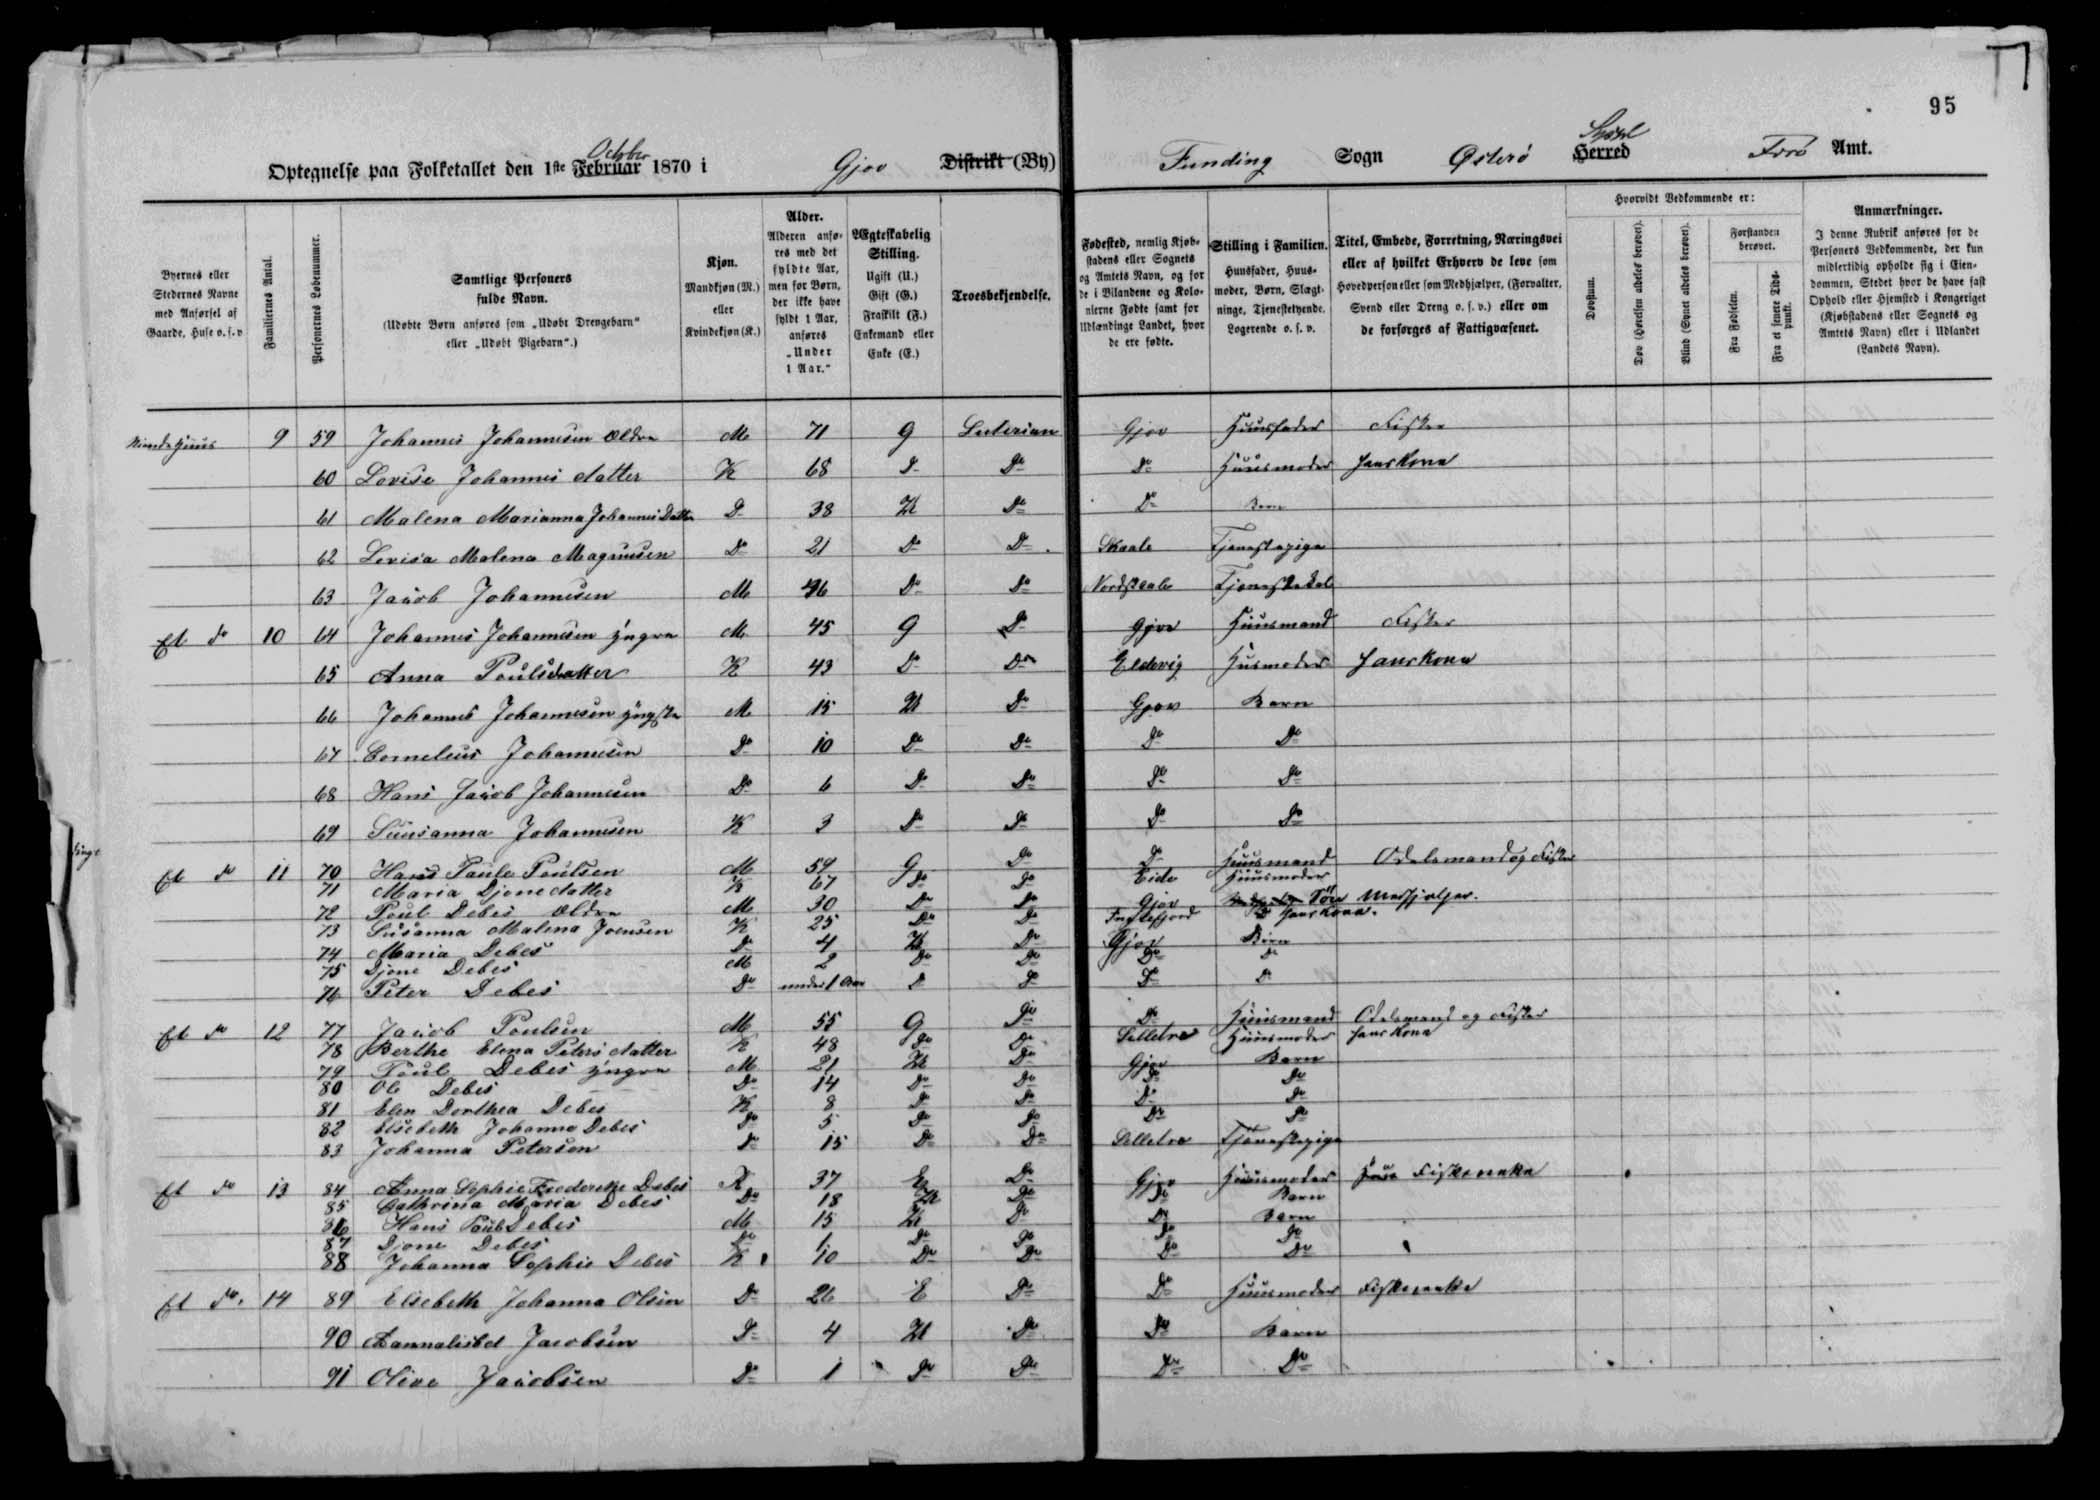 95
Optegnelse paa Folketallet den 1ste Februar October 1870 i Gjov Distrikt (By) Funding Sogn Østerø Herred Syssel Færø Amt.
Byernes eller Stedernes Navne med Anførsel af Gaarde, Huse o.s.v
Familiernes Antal.
Personernes Løbenummer.
Samtlige Personers fulde Navn.
(Udøbte Børn anføres som „Udøbt Drengebarn" eller „Udøbt Pigebarn".)
Kjøn.
Mandkjøn (M.) eller Kvindekjøn (K.)
Alder.
Alderen anføres med det fyldte Aar, men for Børn, der ikke have fyldt 1 Aar, anføres „Under 1 Aar."
Ægteskabelig Stilling.
Ugift (U.) Gift (G.) Fraskilt (F.) Enkemand eller Enke (E.)
Troesbekjendelse.
Fødested, nemlig Kjøbstadens eller Sognets og Amtets Navn, og for de i Bilandene og Kolonierne Fødte samt for Udlændinge Landet, hvor de ere fødte.
Stilling i Familien.
Huusfader, Huusmoder, Børn, Slægtninge, Tjenestetyende, Logerende o. s. v.
Titel, Embede, Forretning, Næringsvei eller af hvilket Erhverv de leve som Hovedperson eller som Medhjælper, (Forvalter, Svend eller Dreng o. s. v.) eller om de forsørges af Fattigvæsenet.
Hvorvidt Vedkommende er:
Døvstum.
Døv (Hørelsen aldeles berøvet).
Blind (Synet aldeles berøvet).
Forstanden berøvet.
Fra Fødselen.
Fra et senere Tidspunkt.
Anmærkninger.
I denne Rubrik anføres for de Personers Vedkommende, der kun midlertidig opholde sig i Eiendommen, Stedet hvor de have fast Ophold eller Hjemsted i Kongeriget (Kjøbstadens eller Sognets og Amtets Navn) eller i Udlandet (Landets Navn).
9 59 Johannes Johannesen ældre M 71 G Luterian Gjov Huusfader Fisker
60 Lovise Johannes datter K 68 Do Do Do Huusmoder Hans Kone
61 Malena Marianna Johannes Datter Do 38 U Do Do Barn
62 Lovisa Malena Magnusen Do 21 Do Do Skaale Tjenestepige
63 Jacob Johannesen M 46 Do Do Nordskaale Tjenestekal
Et do 10 64 Johannes Johannesen yngre M 45 G Do Gjov Huusmand Fisker
65 Anna Poulsdatter K 43 Do Do Eldevig Husmoder Hans Kone
66 Johannes Johannesen yngste M 15 U Do Gjov Barn
67 Cornelius Johannesen Do 10 Do Do Do Do
68 Hans Jacob Johannesen Do 6 Do Do Do Do
69 Susanna Johannesen K 3 Do Do Do Do
Et do 11 70 Hans Paule Poulsen M 59 G Do Do Huusmand Odelsmand og Fisker
71 Maria Djone datter K 67 Do Do Eide Huusmoder
72 Poul Debes ældre M 30 Do Do Gjov Søn Medhjælper.
73 Susanna Malena Joensen K 25 Do Do Do Hans Kone.
74 Maria Debes Do 4 U Do Gjov Børn
75 Djone Debes M 2 Do Do Do Do
76 Peter Debes Do under 1 Aar Do Do Do Do
Et do 12 77 Jacob Poulsen M 55 G Do Do Huusmand Odelsmand og Fisker
78 Berthe Elena Peters datter K 48 Do Do Selletre Huusmoder Hans Kone
79 Poul Debes yngre M 21 U Do Gjov Barn
80 Ole Debes Do 14 Do Do Do Do
81 Elen Dorthea Debes K 8 Do Do Do Do
82 Elsebeth Johanna Debes Do 5 Do Do Do Do
83 Johanna Petersen Do 15 Do Do Selletre Tjenestepige
Et do 13 84 Anna Sophie Frederikke Debes K 37 E Do Gjov Huusmoder Fiskerenke
85 Cathrina Maria Debes Do 18 U Do Do Barn
86 Hans Poul Debes M 15 U Do Do Barn
87 Djone Debes Do 1 Do Do Do Do
88 Johanna Sophie Debes K 10 Do Do Do Do
Et do. 14 89 Elsebeth Johanna Olsen Do 26 E Do Do Huusmoder Fiskerenke
90 Aannalisbet Jacobsen Do 4 U Do Do Barn
91 Olive Jacobsen Do 1 Do Do Do Do